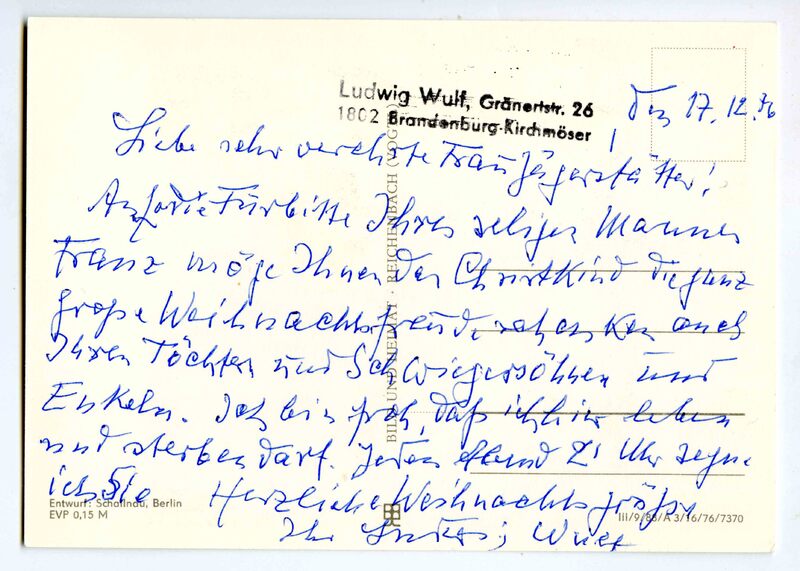 Ludwig Wulf, Gränertstr. 26
1802 Brandenburg-Kirchmöser
den 17.12.76
Liebe sehr verehrte Frau Jägerstätter!
Auf die Fürbitte Ihres seligen Mannes
Franz möge Ihnen das Christkind die ganz
große Weihnachtsfreude schenken auch
Ihren Töchtern und Schwiegersöhnen und
Enkeln. Ich bin froh, daß ich hier leben
und sterben darf. Jeden Abend 21 Uhr segne
ich Sie Herzliche Weihnachtsgrüße
Ihr Ludwig Wulf
BILD UND HEIMAT · REICHENBACH (VOGTL)
Entwurf: Berlin
EVP 0,15 M
III/9/88/A 3/16/76/7370